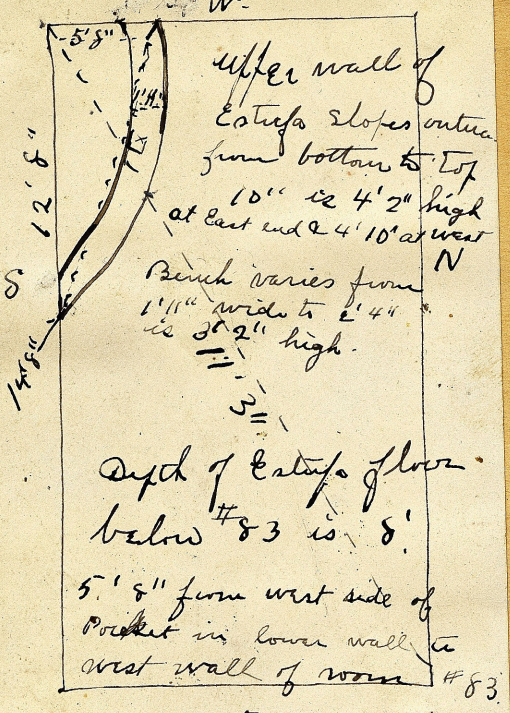 W.
5'8"
1'11"
upper wall of
Estufa Slopes outwa
from bottom to Top
12'8"
10" is 4'2" high
at East end & 4'10" at west
N
S
Bench varies from
1'11" wide to 2'4"
is 3'2" high.
14'8"
11'3"
Depth of Estufa floor
below #83 is 8'.
5'8" from west side of
Pocket in lower wall to
west wall of room #83.